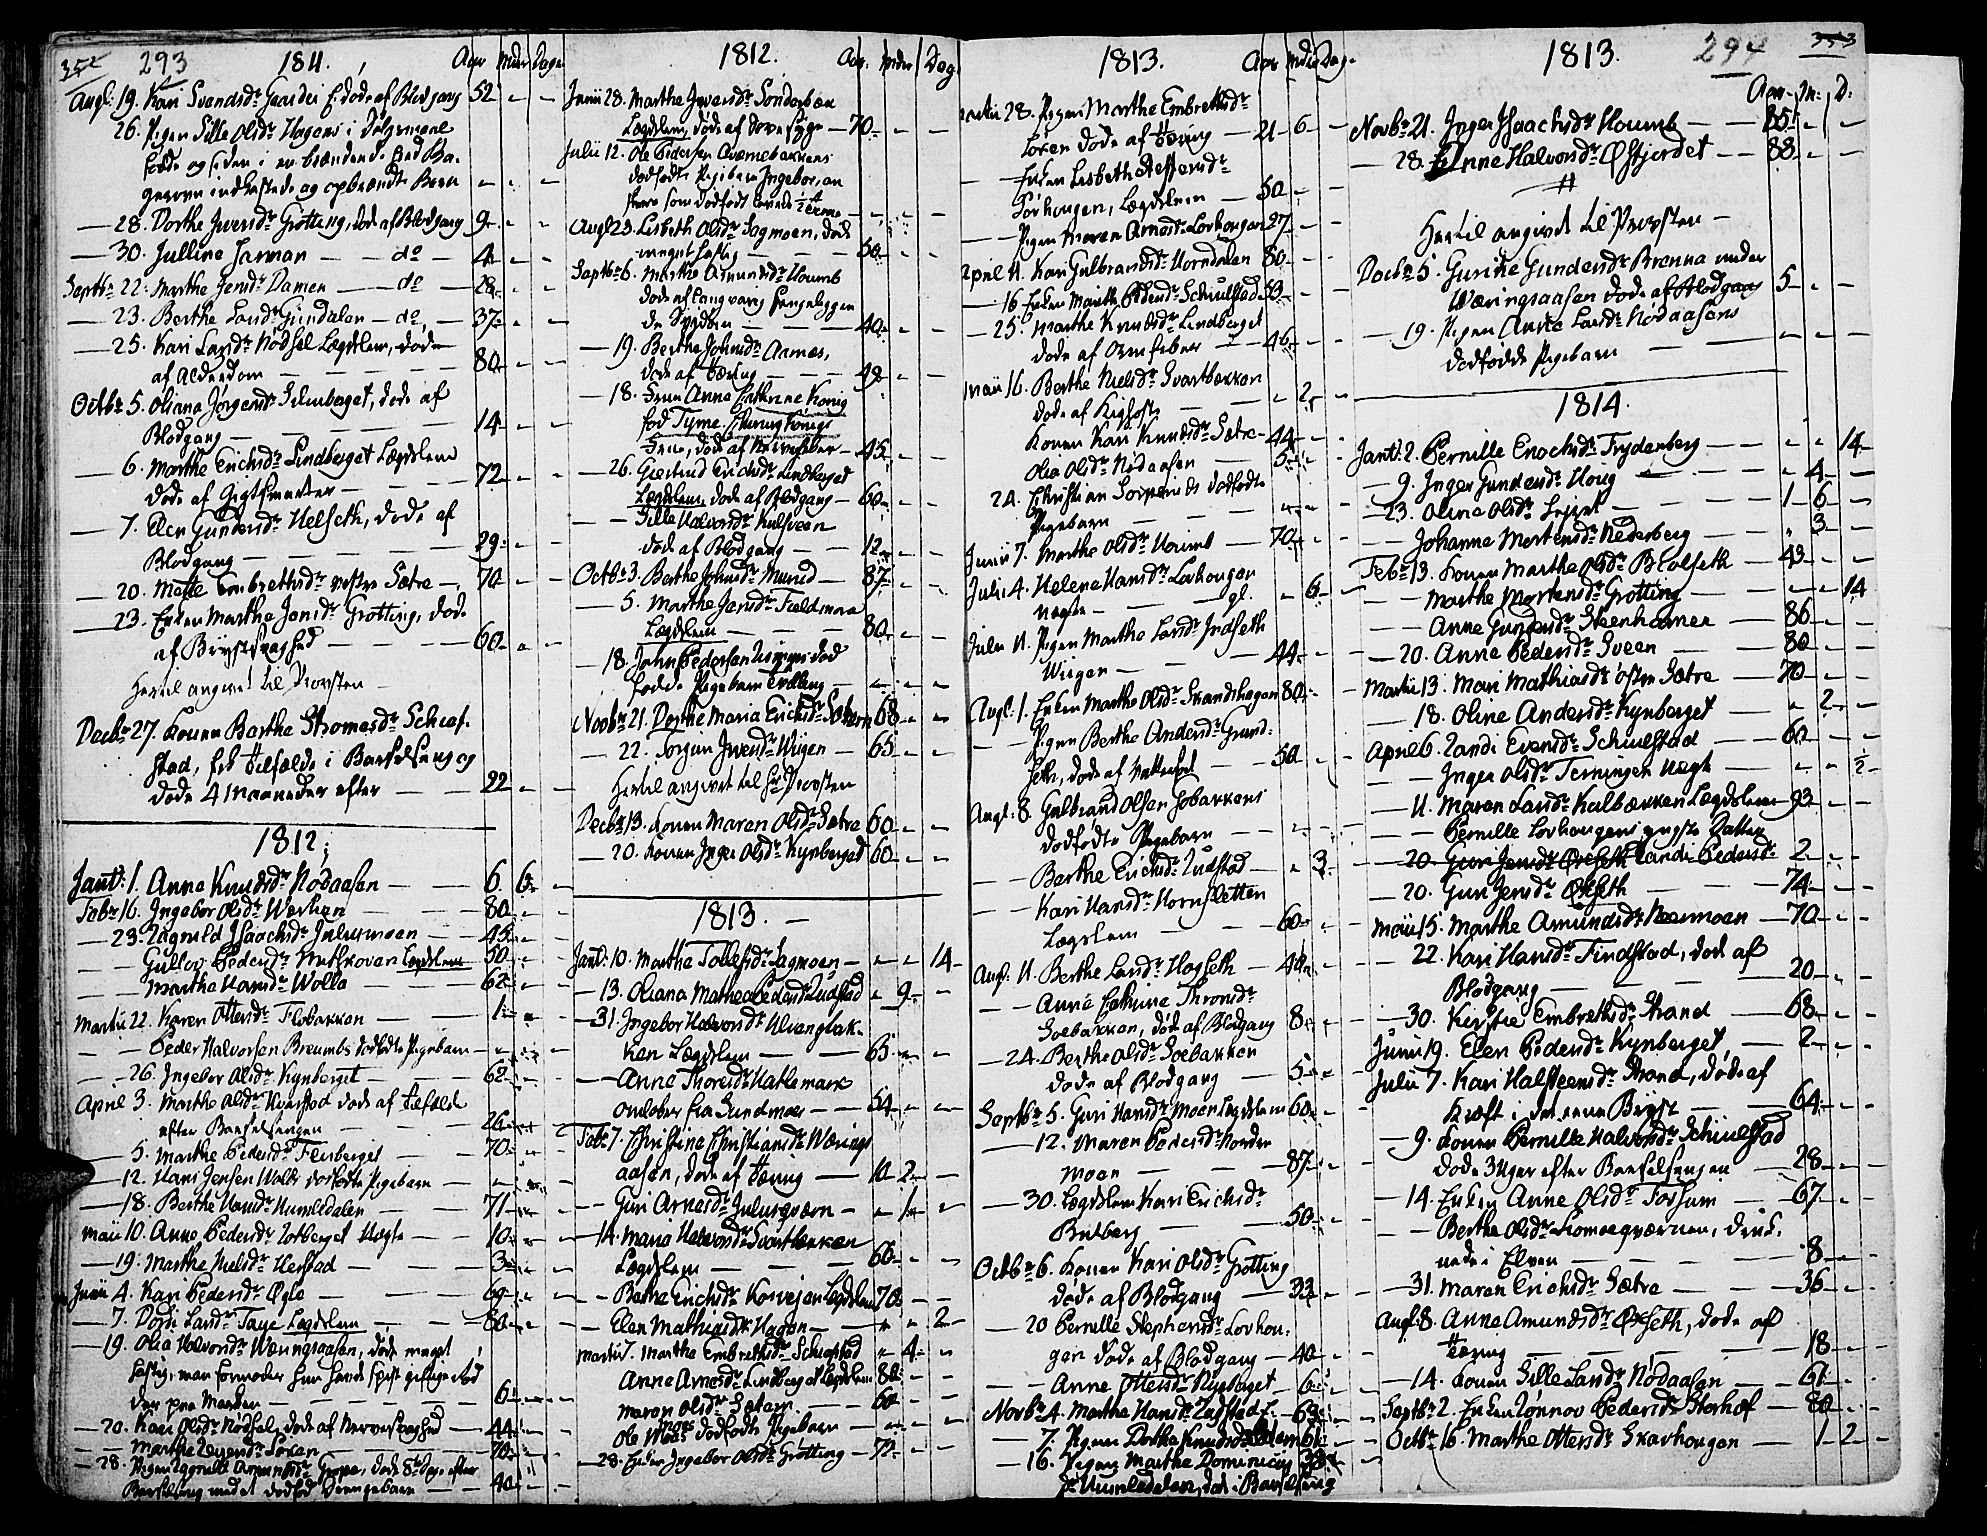 352
293
1811.
Aar Mdr Dage
Augt: 19. Kari Svendsdr Gaardei E. døde af Blodgang 52
26. Pigen Sille Olsdr Hagens i Dølgsmaal
fødde og siden i en brændende
indkastede og opbrændte Barn
28. Dorthe Iversdr Grötting, død af Blodgang 9
30. Julline Jarman do 4
Septbr 22. Marthe Jensdr Damen do 28
23. Berthe Larsdr Gindalen do 37
25. Kari Larsdr Nödsel Lægdslem, døde
af Alderdom 80
Octbr 5. Oliana Jörgensdr Schulberget, døde af
Blodgang 14
6. Marthe Erichsdr Lindberget Lægdslem
døde af Gigtsmerter 72
7. Elen Gundersdr Helseth, døde af
Blodgang 29
20. Mette Embrethsdr vestre Sætre 70
23. Enken Marthe Jonsdr Grötting, døde
af Brystsvaghed 60
Hertil angivet til Provsten
Decbr 27. Konen Berthe Thomesdr Schief-
stad, fik tilfælde i Barselseng og
døde 4 Maaneder efter 22
1812;
Janu: 1. Anne Knudsdr Nödaasen 6 6
Febr 16. Ingebor Olsdr Werken 80
23. Ragnild Isaachsdr Julusmoen 45
Gullov Pedersdr Lægdslem 50
Marthe Hansdr Wolla 62
Martii 22. Karen Ottersdr Flobakken 1
Peder Halvorsen Breumbs dødfødte Pigebarn
26. Ingebor Olsdr Kynberget 62
April 3. Marthe Olsdr Kverstad døde af tilfælde
efter Barselsengen 26
5. Marthe Pedersdr Flenberget 70
12. Hans Jensen Wolds dødfødte Pigebarn
18. Berthe Hansdr Humledalen 71
Maii 10. Anne Pedersdr Lotberget Uegte 10
19. Marthe Nielsdr Herstad 3
Junii 4. Kari Pedersdr Ögle 69
7. Dordi Larsdr Taye Lægdslem 80
19. Olia Halvorsdr Wæringsaasen, døde meget
hastig, man formoder hun havde spist giftige
der paa Marken 6
20. Kari Olsdr Nödsel, døde af Nervesvaghed 44
Marthe Sören 70
28. Pigen Gropa, døde 8te Dage efter
Barselseng med et dødfød Drengebarn 40
1812.
Aar. Mdr Dag.
Junii 28. Marthe Iversdr Sönderbæk
Lægdslem, døde af Dovesyge 70
Julii 12. Ole Pedersen Qvernebakkens
dødfødte Pigebarn Ingebor, en
større som dødfødt levede 1/2 Time
Augt 23. Lisbeth Olsdr Sagmoen, døde
meget hastig 50
Septbr 6. Marthe Amundsdr Houmb
døde af langvarig Sengeliggen
de Sygdom 40
19. Berthe Johnsdr Aarnæs,
døde af tæring 49
18. Frue Anne Cathrine König
fød Tyrne
Frue, døde af Nervefeber 45
26. Giertrud Erichsdr Lindberget
Lægdslem, døde af Blodgang 60
Sille Halvorsdr Kulsveen
døde af Blodgang 12
Octbr 3. Berthe Johnsdr Murud 87
5. Marthe Jensdr Fieldmora
Lægdslem 80
18. John Pedersen død
fødde Pigebarn Tvilling
Novbr 21. Dorthe Maria Erichsdr Sætern 68
22. Jörgin Iversdr Wiigen 65
Hertil angivet til Hr Provsten
Decbr 13. Konen Maren Olsdr Sætre 60
20. Konen Inger Olsdr Kynberget 60
1813.
Janu: 10. Marthe Tollefsdr Sagmoen 14
13. Oliana Mathea Pedersdr Rudstad 9
31. Ingebor Halvorsdr Ulvangbak-
ken Lægdslem 63
Anne Thoresdr Hattemark
omløber fra Sundmoer 54
Febr 7. Christine Christiansdr Wærings
aasen, døde af tæring 10 2
Guri Arnesdr Julusqværn 1
14. Maria Halvorsdr Svartbækken
Lægdslem 66
Berthe Erichsdr Korsvejen Lægdslem 70
Elen Mathiasdr Hagen 2
Martii 7. Marthe Embrethsdr Schiefstad 4
Anne Arnesdr Lindberget Lægdslem 88
Maren Olsdr Sætern 60
Ole Moes dødfødte Pigebarn
28. Enken Ingebor Olsdr Grötting 72
1813.
Aar Mdr Dag.
Martii 28. Pigen Marthe Embrethsdr
Loken døde af tæring 21 6
Enken Lisbeth Steffensdr
Sörhougen, Lægdslem 50
Pigen Maren Arnesdr Lovhougen 27
April 11. Kari Gulbrandsdr Horndalen 80
16. Enken Marthe Pedersdr Schiulstad 53
25. Marthe Knudsdr Lindberget
døde af Ormfeber 46
Maii 16. Berthe Nielsdr Svartbækken
døde af Kighoste 2
Konen Kari Knudsdr Sætre 44
Olia Olsdr Nödaasen 5
24. Christian dødfødte
Pigebarn
Junii 7. Marthe Olsdr Houmb 70
Julii 4. Helene Hansdr Lovhougen
Uegte 6
Julii 11. Pigen Marthe Larsdr Indseth
Wiigen 44
Augt: 1. Enken Marthe Olsdr Strandhagen 80
Pigen Berthe Andersdr Grund-
seth, døde af Vattersot 50
Augt: 8. Gulbrand Olsen Sobakkens
dødfødte Pigebarn
Berthe Erichsdr Rudstad 3
Kari Hansdr Hornsletten
Lægdslem 60
Augt: 11. Berthe Larsdr Hagseth 40
Anne Cathrine Thronsdr
Soebakken, døde af Blodgang 8
24. Berthe Olsdr Soebakken
døde af Blodgang 5
Septbr 5. Guri Hansdr Moen Lægdslem 60
12. Maren Pedersdr Norder
moen 87
30. Lægdslem Kari Erichsdr
Bulberg 50
Octbr 6. Konen Kari Olsdr Grötting
døde af Blodgang 33
20 Pernille Stephensdr Lovhou-
gen døde af Blodgang 40
Anne Ottersdr Nyberget 6
Novbr 4. Marthe Hansdr 63
7. Pigen Dorthe Knudsdr
16. Pigen Marthe Dominicus
dr Humledalen, døde i Barselseng
1813.
294
353
Aar. M: D:
Novbr 21. Inger Isaachsdr Houmb 85
28. Anne Halvorsdr Öfstjordet 88
Hertil angivet til Provsten
Decbr 5. Gurine Gundersdr Brenna under
Wæringsaasen døde af Blodgang 5
19. Pigen Anne Larsdr Nödaasens
dødfødde Pigebarn
1814.
Janu: 2. Pernille Enochsdr Frydenberg 14
9. Inger Gundersdr Houg 4
23. Oline Olsdr 1 6
Johanne Mortensdr Nederberg 3
Febr 13. Konen Marthe Olsdr Blolseth 43
Marthe Mortensdr Grötting 14
Anne Gundersdr Steenhamer 86
20. Anne Pedersdr Sveen 80
Martii 13. Mari Mathiasdr östre Sætre 70
18. Oline Andersdr Kynberget 2
April 6. Randi Evensdr Schiulstad 60
Inger Olsdr Terningen Uegte 1/2
11. Maren Larsdr Kalbækken Lægdslem 93
Pernille Lovhougens yngste Datter
20. Guri Jensdr Öxseth Randi Pedersdr 2
20. Guri Jensdr Öxseth 74
Maii 15. Marthe Amundsdr Nermoen 70
22. Kari Hansdr Findstad, døde af
Blodgang 20
30. Kirstie Embrethsdr Strand 68
Junii 19. Elen Pedersdr Kynberget 2
Julii 7. Kari Halsteensdr Strand, døde af
Kræft i det eene Bryst 64
9. Konen Pernille Halvorsdr Schiulstad
døde 3 Uger efter Barselsengen 28
14. Enken Anne Olsdr Torhuus 67
Berthe Olsdr Lomoeqværnen, druk-
nede i Elven 8
31. Maren Erichsdr Sætre 36
Augt: 8. Anne Amundsdr Öxseth, døde af
tæring 18
14. Konen Sille Larsdr Nödaasen 61
Septbr 2. Enken Rönnov Pedersdr Storhof 80
Octbr 16. Marthe Ottersdr Skavhougen 1 2